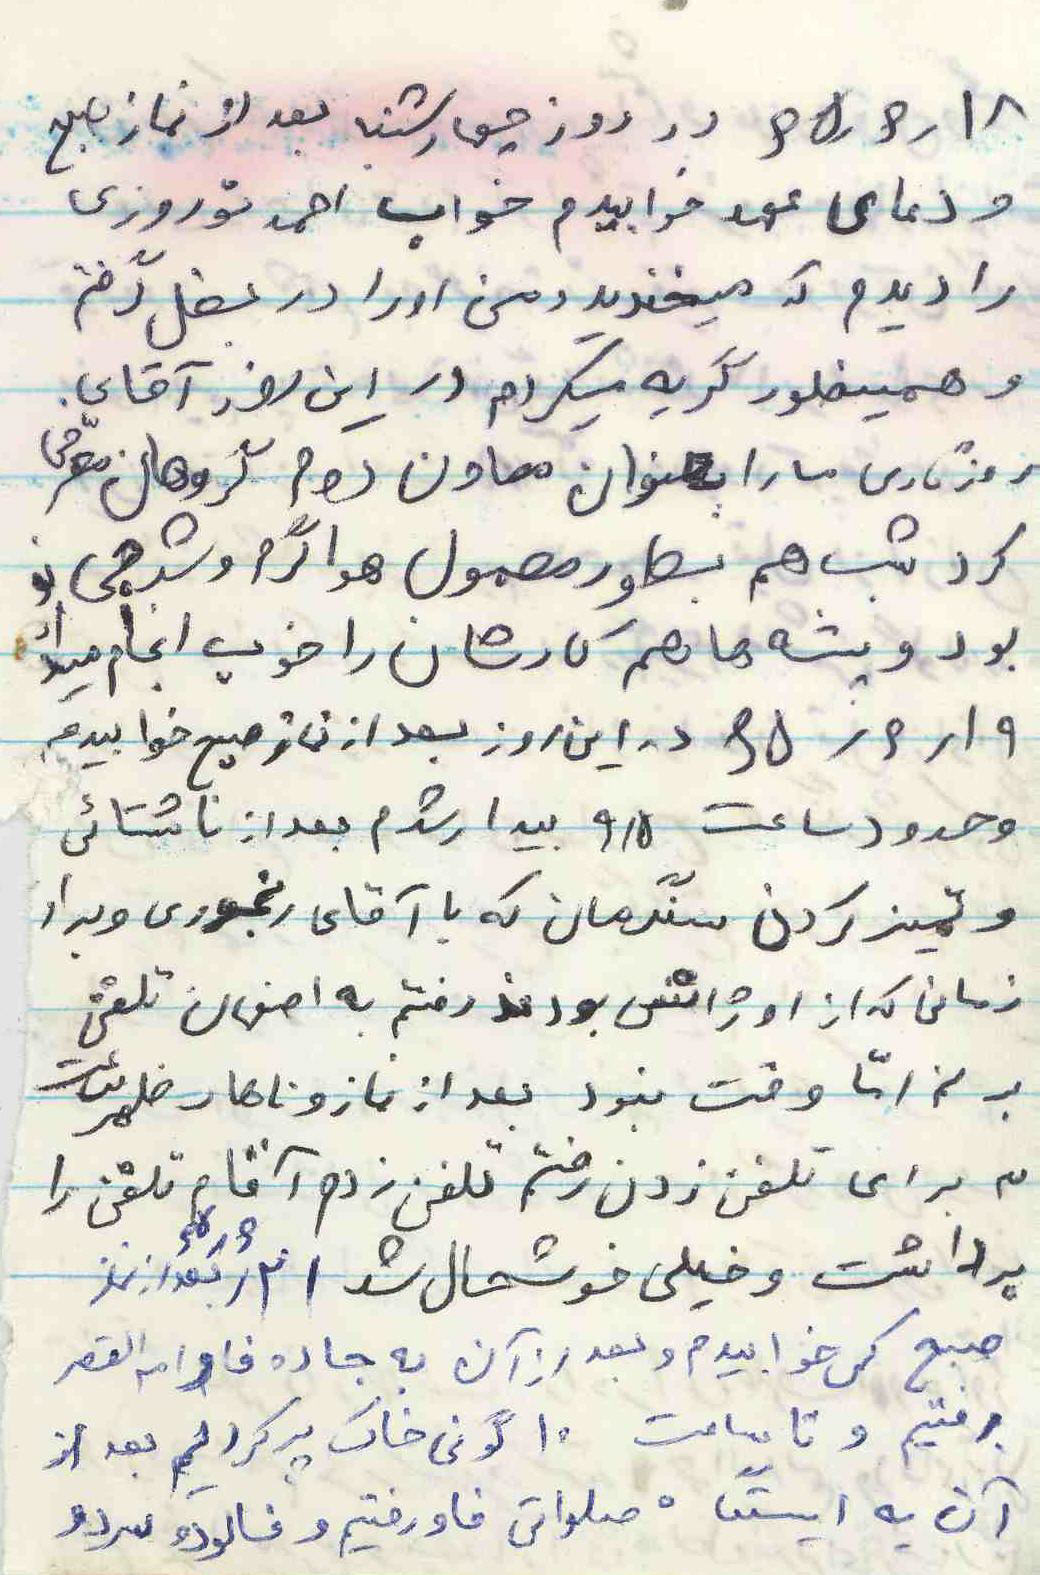 ۱۸ر۴ر۶۵ در روز چهارشنبه بعد از نماز صبح
و دعای عهد خوابیدم خواب احمد نوروزی
را دیدم که میخندید و من او را در بغل گرفتم
و همینطور گریه میکردم در این روز آقای
روزگاری ما را بعنوان معاون دوم گروهان معرفی
کرد شب هم بطور معمول هوا گرم و شرجی
بود و پشه ها هم کارشان را خوب انجام
۱۹ر۴ر۶۵ در این روز بعد از نماز صبح خوابیدم
و حدود ساعت ۹/۵ بیدار شدم بعد از ناشتائی
و تمیز کردن سنگرمان که با آقای رنجبوری و برادر
زمانی که از اورژانس بودند رفتم به اصفهان تلفن
بزنم امّا وقت نبود بعد از نماز و ناهار ظهر ساعت
۲ برای تلفن زدن رفتم تلفن زدم آقام تلفن را
برداشت و خیلی خوشحال شد بعد از نماز
صبح کمی خوابیدم و بعد از آن به جاده فاو ام القصر
رفتیم و تا ساعت ۱۰ گونی خاک پر کردیم بعد از
آن به ایستگاه صلواتی فاو رفتیم و فالوده سرد و